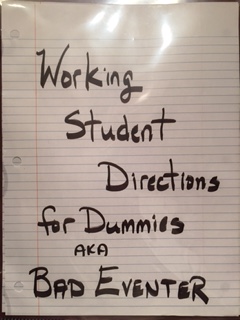 Working
Student
Directions
for Dummies
AKA
BAD EVENTER